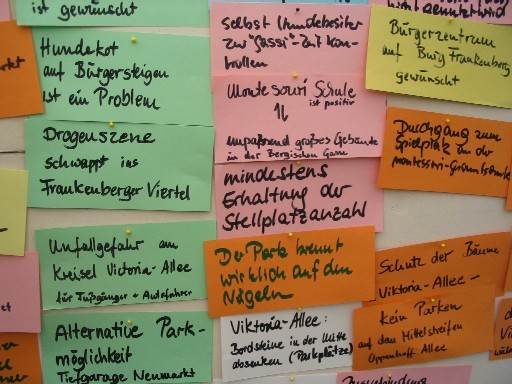 ist gewünscht
Hundekot
auf Bürgersteigen
ist ein Problem
Drogenszene
schwappt ins
Frankenberger Viertel
Unfallgefahr am
Kreisel Victoria-Allee
für Fußgänger + Autofahrer
Alternative Park-
möglichkeit
Tiefgarage Neumarkt
selbst Hundebesitzer
zur "Gassi"-Zeit kon-
trollen
Montessouri Schule
ist positiv
unpassend großes Gebäude
in der Bergischen Gasse
mindestens
Erhaltung der
Stellplatzanzahl
Der Park brennt
wirklich auf den
Nägeln
Viktoria-Allee:
Bordsteine in der Mitte
absenken (Parkplätze)
Bürgerzentrum
auf Burg Frankenberg
gewünscht
Durchgang zum
Spielplatz an der
montessori-Grundschule
Schutz der Bäume
Viktoria-Allee-
Kein Parken
auf dem Mittelstreifen
Oppenhoff Allee